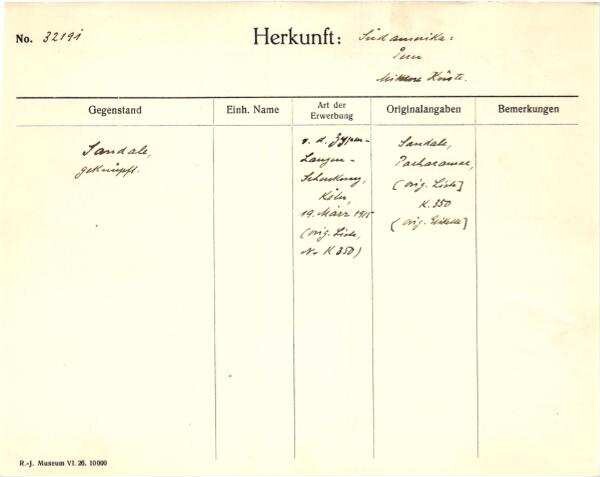 No. 32191
Herkunft: Südamerika:
Peru
Mittlere Küste.
Gegenstand
Einh. Name
Art der
Erwerbung
Originalangaben
Bemerkungen
Sandale,
geknüpft.
v. d. Zypen-
Langen-
Schenkung,
Köln,
19. März 1915
(orig. Liste,
No K 350)
Sandale,
Pachacamac,
(orig. Liste]
K. 350
(orig. Etikette]
R.-J. Museum VI. 26. 10000